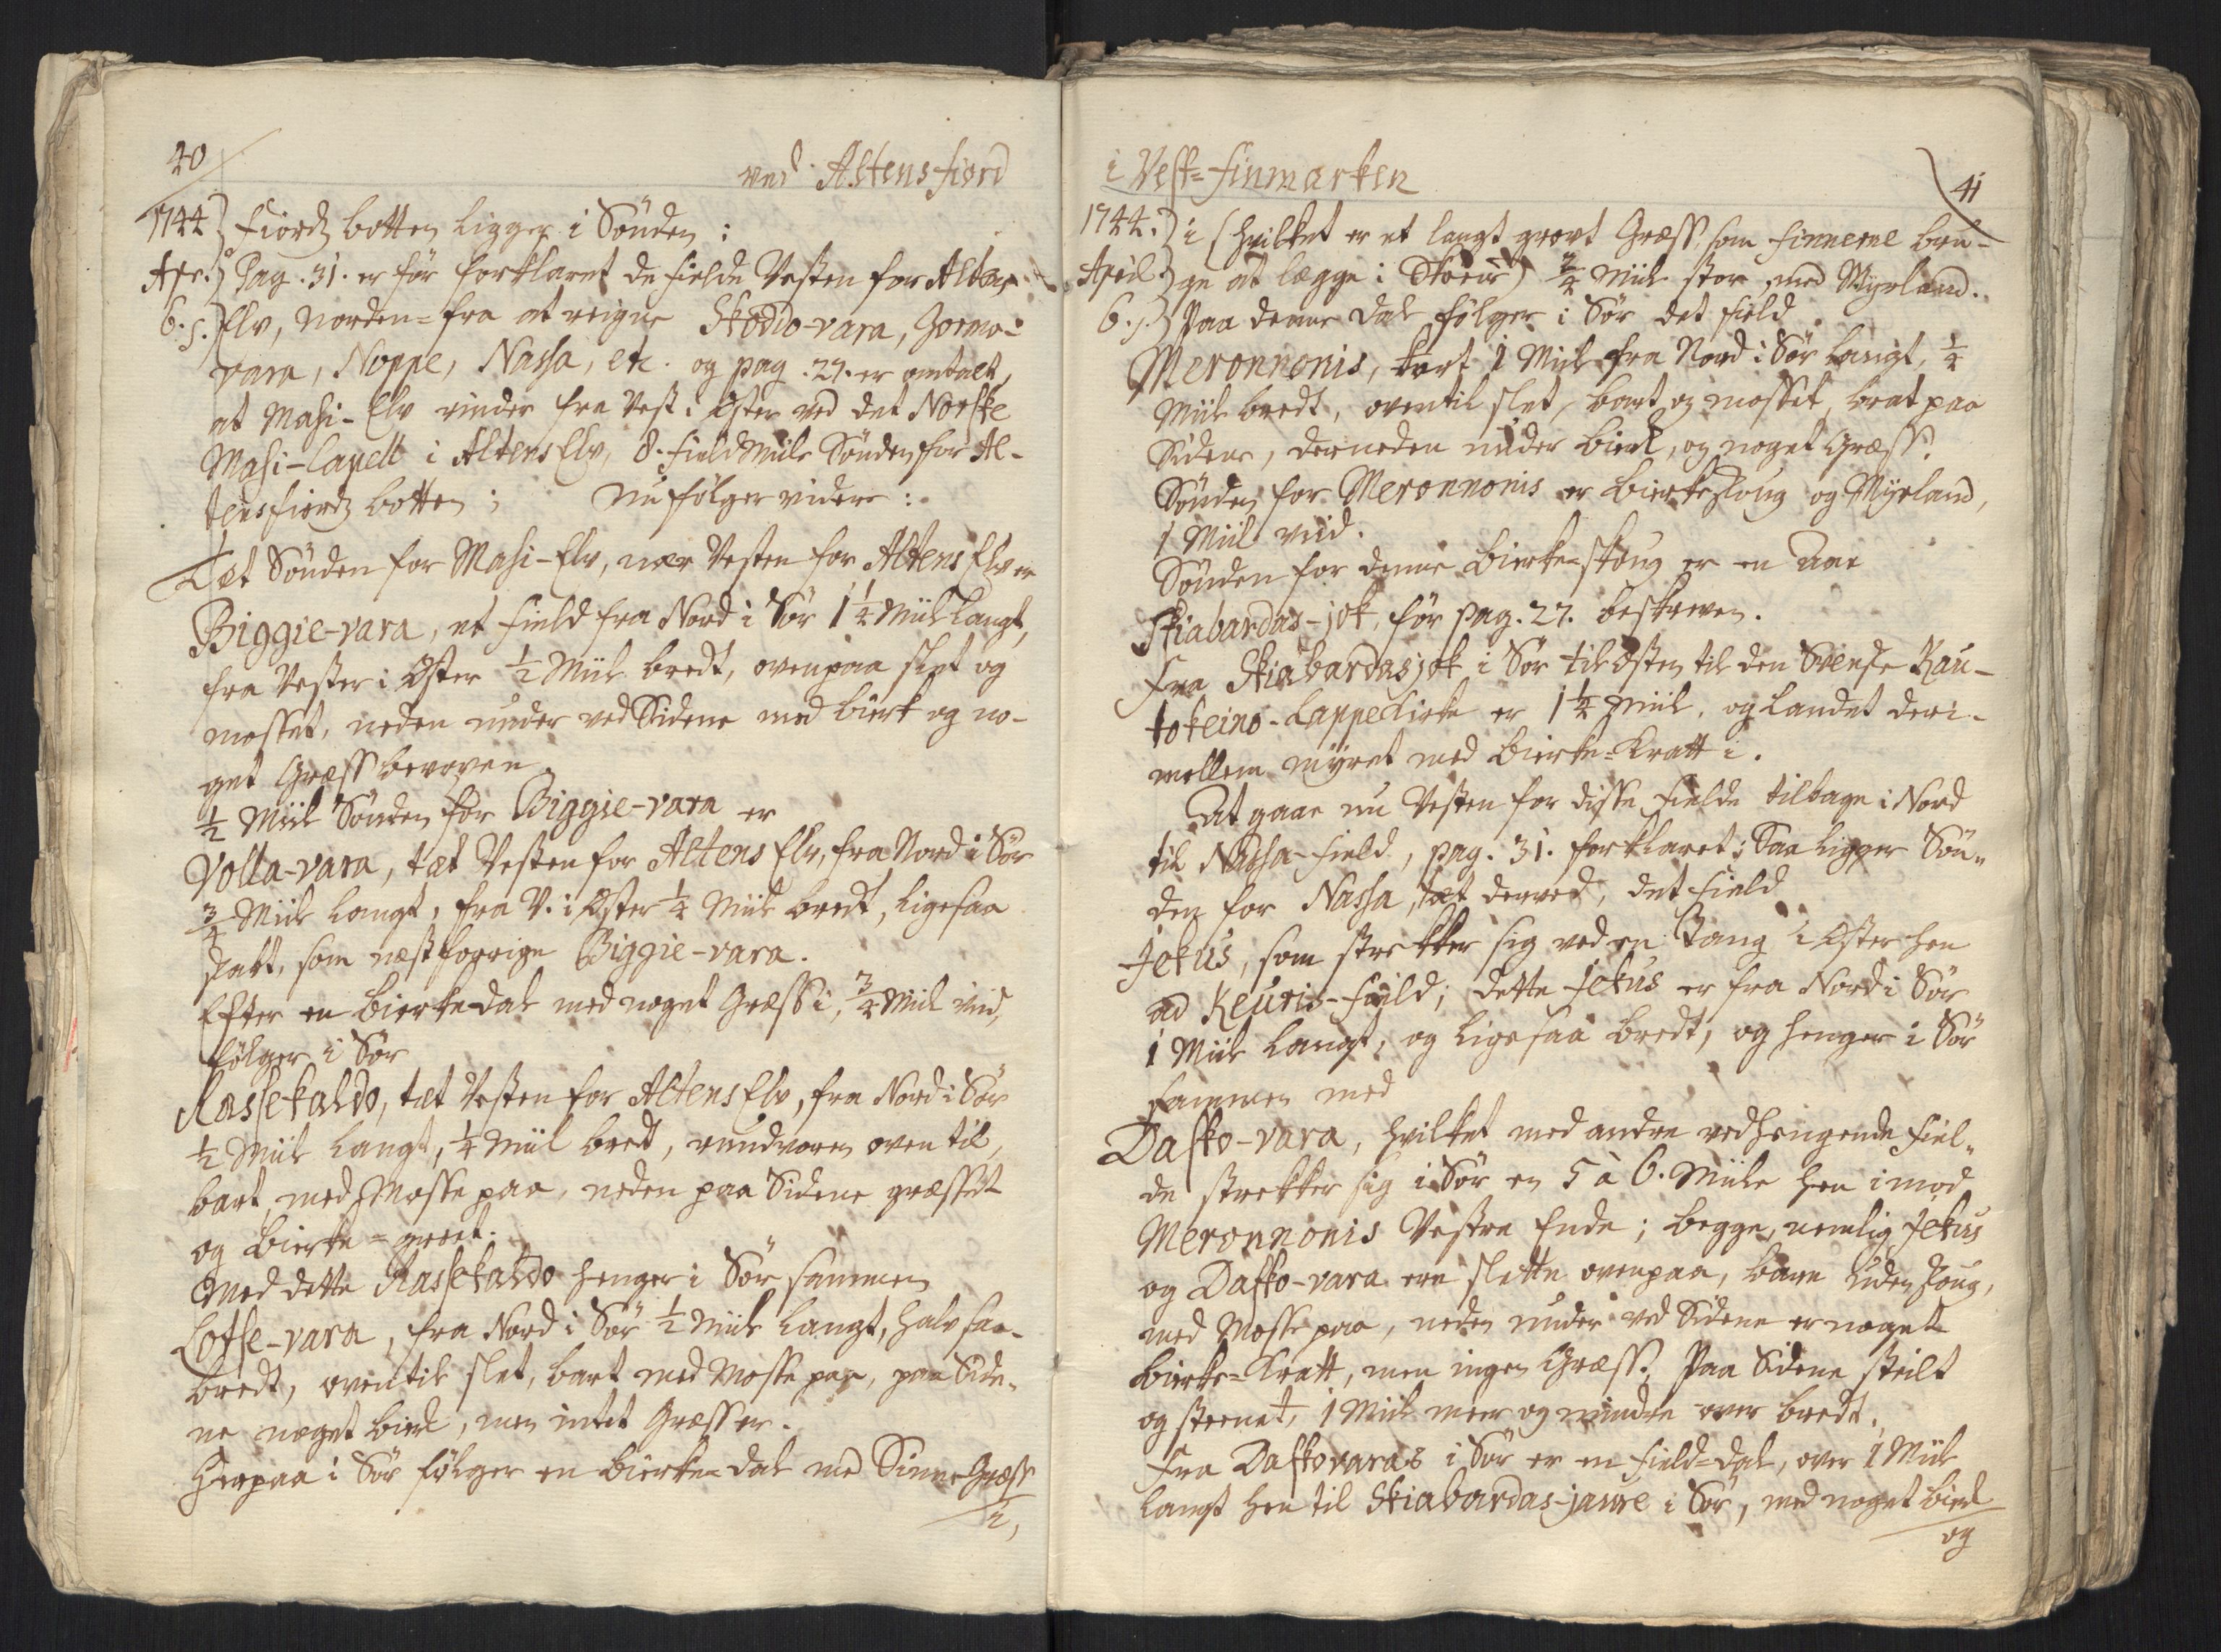 40
ved Altens fiord
1744 Fiordz botten ligger i Sönden;
Apr. Pag. 31. er för forklaret de fielde Vesten for Altens
6. s. Elv, Norden-fra at reigne Skodio-vara, Gormo-
vara, Noppe, Nassa, etc. og pag. 27. er omtalt,
at Masi-Elv rinder fra Vest i Öster ved det Norske
Masi-Capell i Altens Elv, 8. field Miile Sönden for Al-
tensfiordz botten; Nu fölger videre:
Tæt Sönden for Masi-Elv, nær Vesten for Altens Elv er
Biggie-vara, et field fra Nord i Sör 1 1/4 Miil langt,
fra Vester i Öster 1/2 Miil bredt, ovenpaa slet og
mosset, neden under ved Sidene med birk og no-
get Græss bevoxen.
1/2 Miil Sönden for Biggie-vara er
Volla-vara, tæt Vesten for Altens Elv, fra Nord i Sör
3/4 Miil langt, fra V. i Öster 1/4 Miil bredt, ligesaa
skabt, som næstforrige Biggie-vara.
Efter en birke-dal med noget Græss i, 3/4 Miil viid,
fölger i Sör
Rassekaldo, tæt Vesten for Altens Elv, fra Nord i Sör
1/2 Miil langt, 1/4 Miil bredt, rundvoren oven til,
bart med Mosse paa, neden paa Sidene græsset
og birke-groet.
Med dette Rassekaldo henger i Sör sammen
Lotse-vara, fra Nord i Sör 1/2 Miil langt, halv saa
bredt, oventil slet, bart med Mosse paa, paa Side-
ne noget birk, men intet Græss er.
Herpaa i Sör fölger en birke-dal med Sinne-Græss
i,
i Vest-Finmarken
41
1744. i (hvilket er et langt grovt Græss, som finnerne bru-
April ge at lægge i Skoene) 3/4 Miil stor, med Myrland.
6. s. Paa denne dal fölger i Sör det field
Meronnonis, kort 1 Miil fra Nord i Sör langt, 1/4
Miil bredt, oventil slet, bart og mosset, brat paa
Sidene, derneden under birk, og noget Græss.
Sönden for Meronnonis er birkeskoug og Myrland,
1 Miil viid.
Sönden for denne birke-skoug er en Aae
Skiabardas-jok, för pag. 27. beskreven.
Fra Skiabardasjok i Sör til Östen til den Svenske Kau-
tokeino-Lappekirke er 1 1/2 Miil, og landet deri-
mellem myret med birke-Kratt i.
At gaae nu Vesten for disse fielde tilbage i Nord
til Nassa-field, pag. 31. forklaret: Saa ligger Sön-
den for Nassa, tæt derved, det field
Jekus, som strekker sig ved en Tang i Öster hen
ad Keuris-field; dette Jekus er fra Nord i Sör
1 Miil langt, og ligesaa bredt, og henger i Sör
sammen med
Dafko-vara, hvilket med andre vedhengende fiel-
de strekker sig i Sör en 5 à 6. Miile hen imod
Meronnonis Vestre Ende; begge, nemlig Jekus
og Dafko-vara ere slette ovenpaa, bare uden skoug,
med Mosse paa, neden under ved Sidene er noget
birke-Kratt, men ingen Græss. Paa Sidene steilt
og steenet, 1 Miil meer og mindre over bredt.
Fra Dafkovaras i Sör er en field-dal, over 1 Miil
langt hen til Skiabardas-jaure i Sör, med noget birk
og